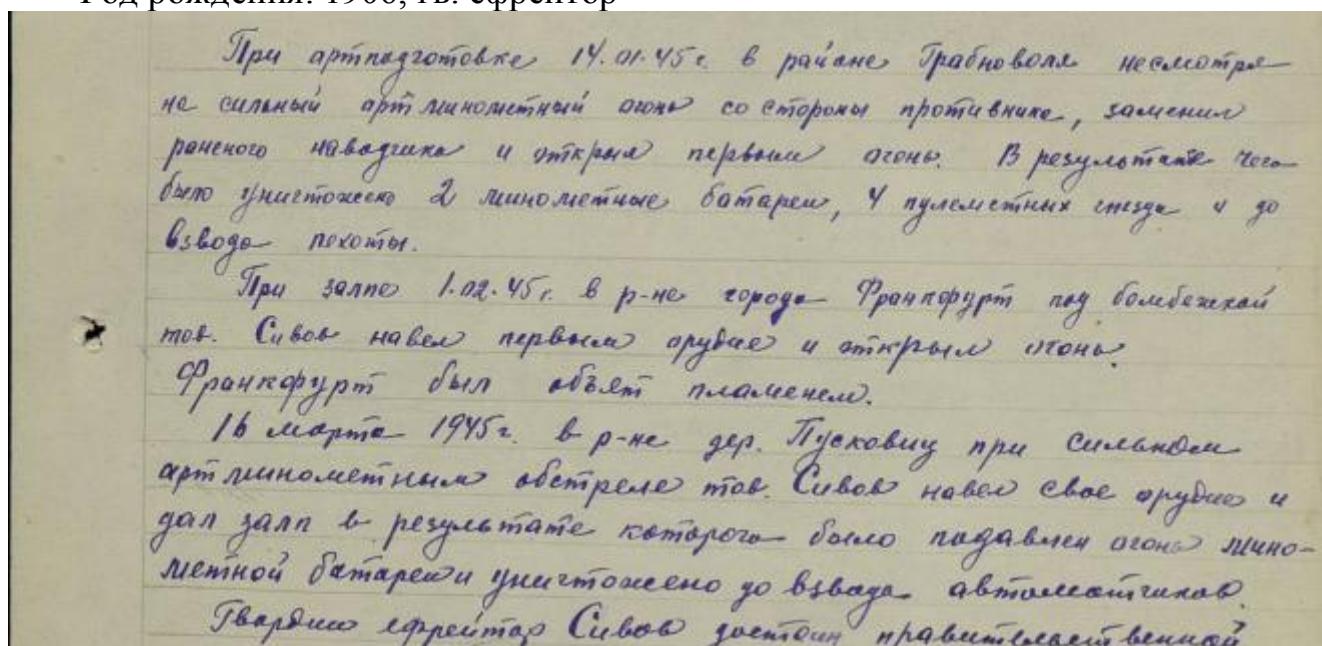 Год рождения: 1906, гв. ефрейтор
При артподготовке 14.01.45 г. в районе Грабноволя несмотря
на сильный артминометный огонь со стороны противника, заменил
раненого наводчика и открыл первым огонь. В результате чего
было уничтожено 2 минометные батареи, 4 пулеметных гнезда и до
взвода пехоты.
При залпе 1.02.45 г. в р-не города Франкфурт под бомбежкой
тов. Сивов навел первым орудие и открыл огонь.
Франкфурт был объят пламенем.
16 марта 1945 г. в р-не дер. Пусковиц при сильном
артминометным обстреле тов. Сивов навел свое орудие и
дал залп в результате которого было подавлен огонь мино-
метной батареи и уничтожено до взвода автоматчиков.
Гвардии ефрейтор Сивов достоин правительственной